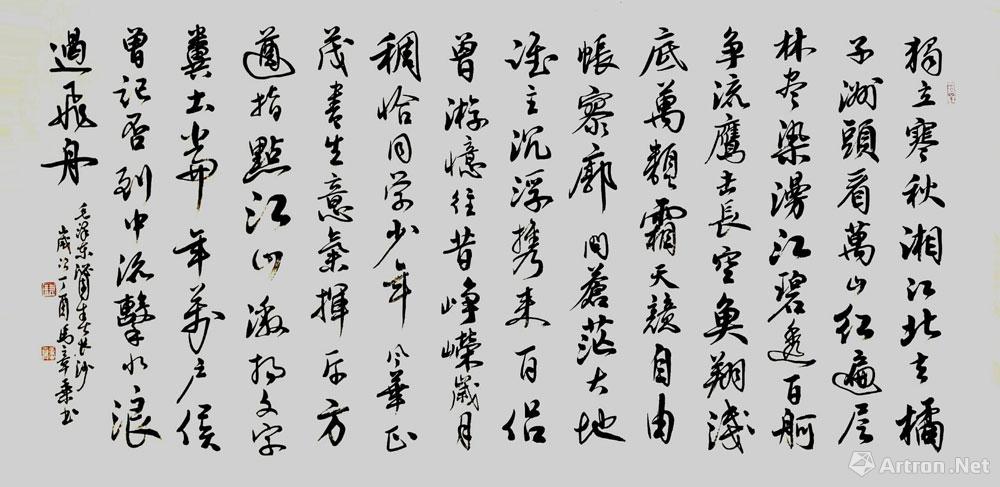 獨立寒秋湘江北去橘
子洲頭看萬山红遍层
林尽染漫江碧透百舸
争流鹰击長空魚翔淺
底萬類霜天競自由
悵寥廓問蒼茫大地
谁主沉浮携来百侣
曾游憶往昔崢嶸歲月
稠恰同学少年风華正
茂書生意氣揮斥方
遒指點江山激扬文字
糞土當年萬户侯
曾記否到中流擊水浪
遏飛舟
毛泽东沁园春长沙
歲次丁酉馬章乘书
Artron.Net